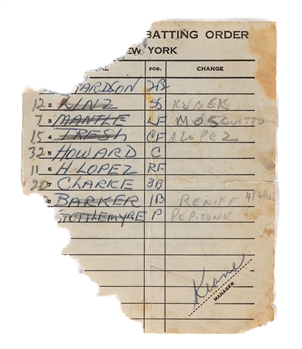 BATTING ORDER
NEW YORK
POS. CHANGE
ARDSON 2B
12 2 LINZ SS KUBEK
7 3 MANTLE LF MOSCHITTO
15 4 TRESH CF A LOPEZ
32 5 HOWARD C
11 6 H. LOPEZ RF
20 CLARKE 3B
BARKER 1B RENIFF
STOTTLEMYRE P PEPITONE
Keane
MANAGER